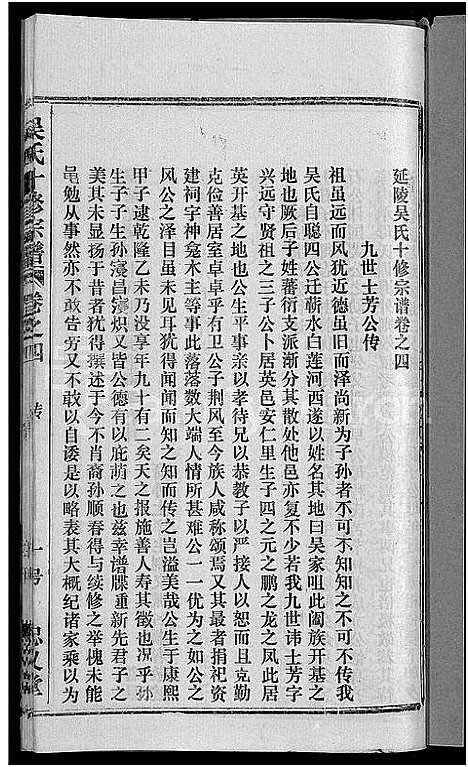 延陵吴氏十修宗谱卷之四
九世士芳公传
祖虽远而风犹近德虽旧而泽尚新为子孙者不可不知知之不可不传我
吴氏自聪四公迁蕲水白莲河西遂以姓名其地曰吴家咀此阖族开基之
地也厥后子姓蕃衍支派渐分其散处他邑亦复不少若我九世讳士芳字
兴远守贤祖之三子公卜居英邑安仁里生子四之元之鹏之龙之凤此居
英开基之地也公生平事亲以孝待兄以恭教子以严接人以恕而且克勤
克俭善居室卓卓乎有卫公子荆风至今族人咸称颂焉又其最者捐祀资
建祠宇神龛木主等事此落落数大端人情所甚难公一一优为之如公之
风公之泽目虽未见耳犹得闻闻而知之知而传之岂溢美哉公生于康熙
甲子逮乾隆乙未乃没享年九十有二矣天之报施善人寿其徵也况乎孙
生子子生孙寖昌寖炽又皆公德有以庇荫之也兹幸谱牒重新先君子之
美其未显扬于昔者犹得撰述于今不肖裔孙顺春得与续修之举愧未能
黾勉从事然亦不敢告劳又不敢以自诿是以略表其大概纪诸家乘以为
吴氏十修宗谱 卷之四
传
一号
忠义堂